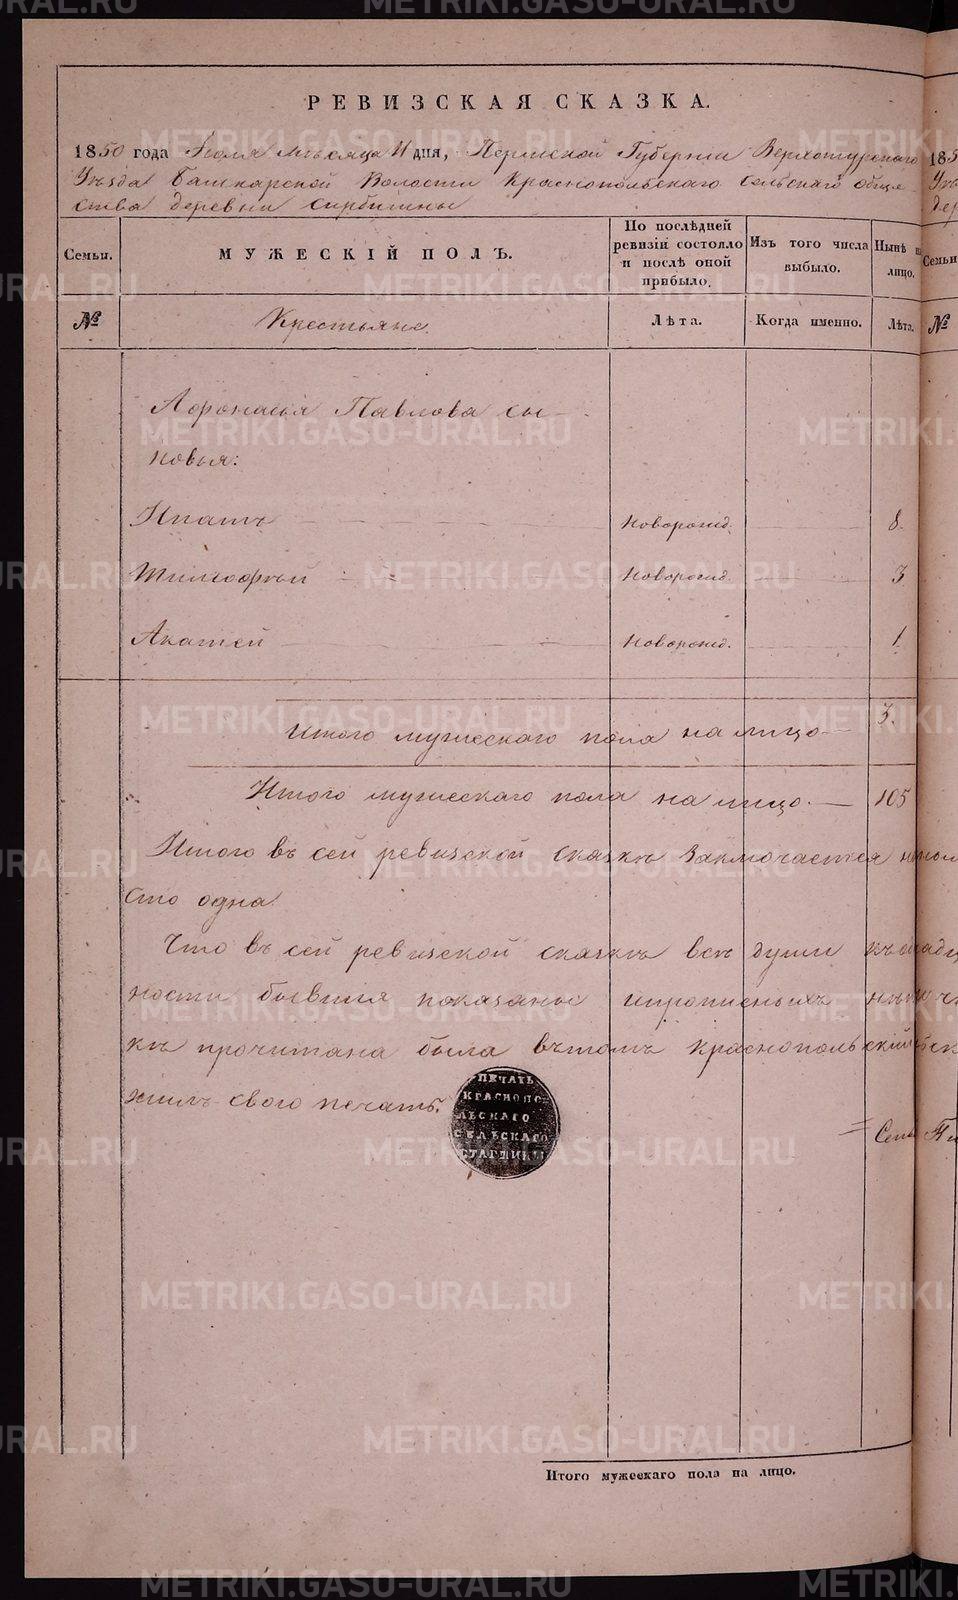 РЕВИЗСКАЯ СКАЗКА.
1850 года Іюля мѣсяца 11 дня, Пермской Губерніи Верхотурскаго
Уѣзда Башкарской Волости Краснопольскаго сельскаго обще-
ства деревни
Семьи.
МУЖЕСКІЙ ПОЛЪ.
По послѣдней ревизіи состояло и послѣ оной прибыло.
Изъ того числа выбыло.
Нынѣ на лицо.
№
Крестьяне.
Лѣта.
Когда именно.
Лѣта.
Афонасья Павлова сы-
новья:
Ипатъ новорожд. 8
Тимофѣй новорожд. 3
новорожд. 1
Итого мужескаго пола на лицо 3.
Итого мужескаго пола на лицо. 105
Итого въ сей ревизской сказкѣ заключается
сто одна
Что въ сей ревизской сказкѣ всѣ души
ности бывшія показаны
кѣ прочитана была въ томъ Краснопольскій
жилъ свою печать.
ПЕЧАТЬ
КРАСНОПО-
ЛЬСКАГО
СЕЛЬСКАГО
СТАРШИНЫ
Итого мужескаго пола на лицо.
Семьи
№
METRIKI.GASO-URAL.RU